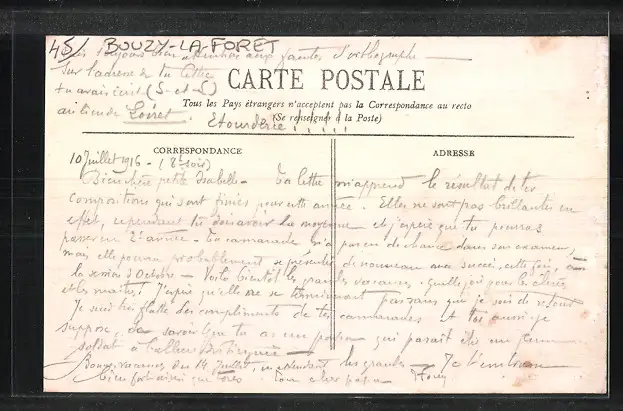 45/ BOUZY-LA-FORET
toujours bien attention aux fautes d'orthographe
Sur l'adresse de ta lettre
tu avais écrit (S-et-L)
au lieu de Loiret. Etourderie ! ! ! ! !
CARTE POSTALE
Tous les Pays étrangers n'acceptent pas la Correspondance au recto
(Se renseigner à la Poste)
CORRESPONDANCE
ADRESSE
10 Juillet 1916 - (8h soir)
Bien chère petite Isabelle - Ta lettre m'apprend le résultat de tes
Compositions qui sont finies pour cette année. Elles ne sont pas brillantes en
effet, cependant tu dois avoir la moyenne et j'espère que tu pourras
passer en 2e année. Ta camarade n'a pas eu de chance dans son examen,
mais elle pourra probablement se présenter de nouveau avec succès, cette fois, à
la session d'Octobre - Voilà bientôt les grandes vacances, quelle joie pour les élèves
et les maîtres ! J'espère qu'elles ne se termineront pas sans que je sois de retour
Je suis très flatté des compliments de tes camarades et toi aussi je
suppose, de savoir que tu as un papa qui paraît être un jeune
soldat
Bonnes vacances du 14 Juillet, en attendant les grandes - Je t'embrasse
bien fort ainsi que ton cher papa Henry